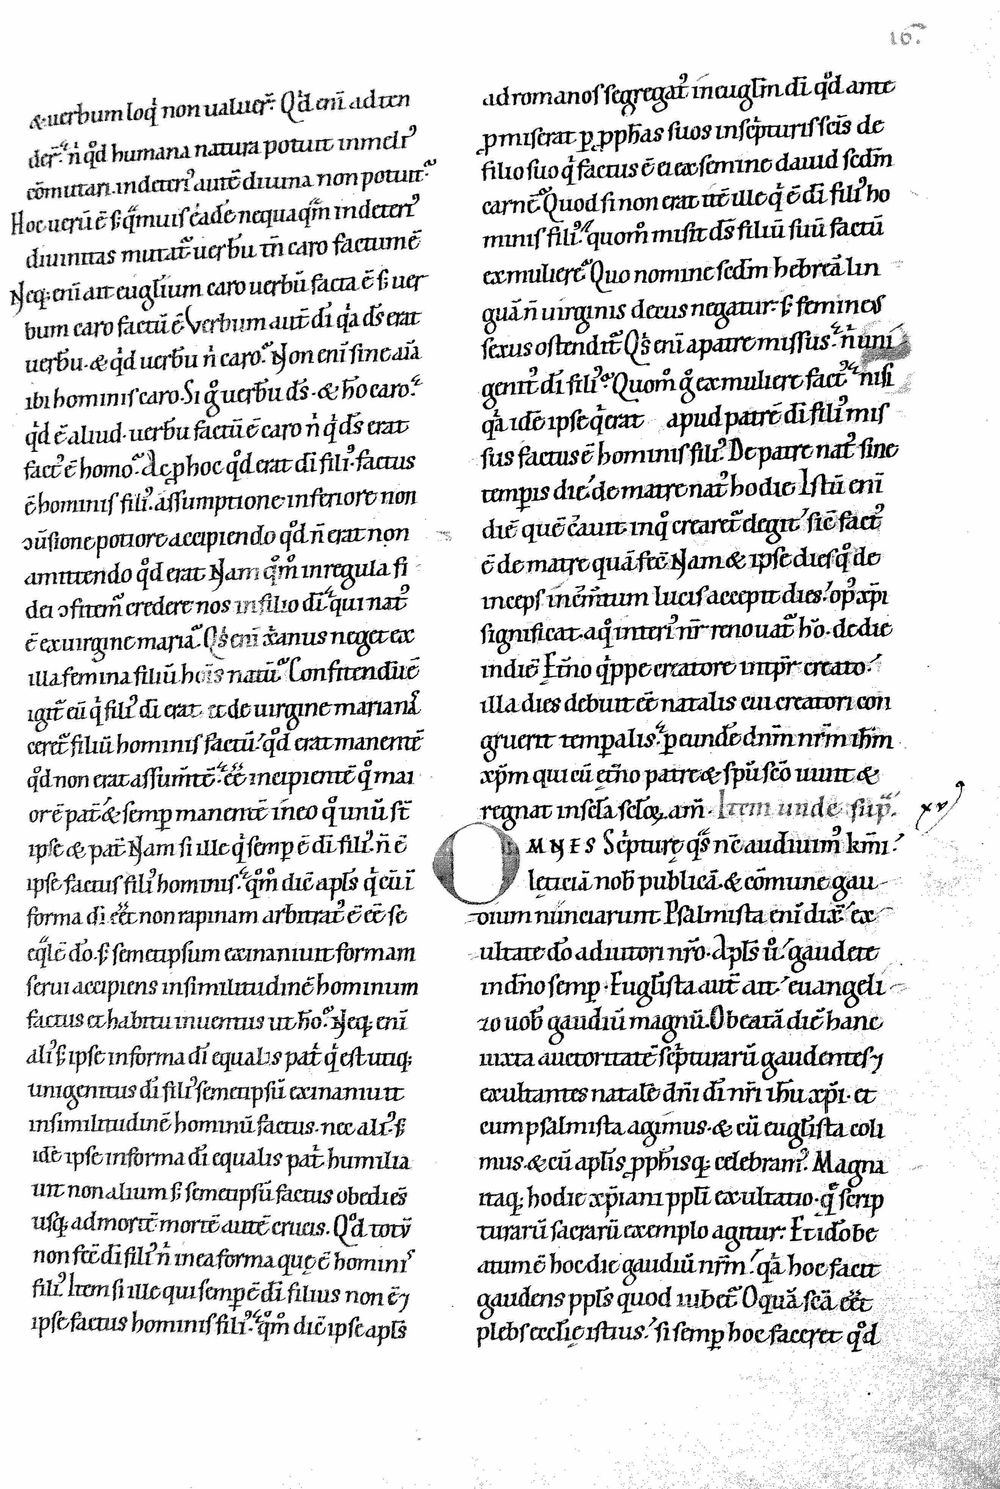 16.
& uerbum loq̇ non ualuer̄. Qd̓ eni adten
der̄. n̄ qd̓ humana natura potuit inmeli᾽
cōmutari. indeteri᾽ autē diuina non potuit.
Hoc uerū ē. s; q̄muis eadē nequaq̄m indeteri᾽
diuinitas mutat᾽ uerbū tn̄ caro factum ē
Neq; eni ait euglium caro uerbū facta ē. s; uer
bum caro factū ē Verbum aut̄ di q̇a d̄s erat
uerbū. & qd̓ uerbū n̄ caro. Non eni sine aīa
ibi hominis caro. Si g̊ uerbū d̄s. & ho caro.
qd̓ ē aliud. uerbū factū ē caro n̄ q̇ d̄s erat
fact᾽ ē homo. Ac p hoc qd̓ erat di fili᾽. factus
ē hominis fili᾽. assumptione inferiore non
ɔūsione potiore accipiendo qd̓ n̄ erat non
amittendo qd̓ erat Nam qm̄ in regula fi
dei ɔfitem̄ credere nos in filio di. qui nat᾽
ē ex uirgine maria. Q̇s eni x̄anus neget ex
illa femina filiū hois natū. Confitendū ē
igit̄ eū q̇ fili᾽ di erat et de uirgine maria na᾽
ceret᾽ filiū hominis factū. qd̓ erat manentē
qd̓ non erat assūmtē. eē incipientē q̊ mai
or ē pat̄ & semp manentē in eo q̊ unū st̄
ipse & pat̄ Nam si ille q̇ semp ē di fili᾽. n̄ ē
ipse factus fili᾽ hominis. qm̄ diē apl̄s q̇ cū ī
forma di eēt non rapinam arbitrat᾽ ē eē se
eqlē dō. s; semetipsum exinaniuit formam
serui accipiens in similitudinē hominum
factus et habitu inuentus ut hō. Neq; eni
ali᾽ s; ipse in forma di equalis pat̄ q̇ est utiq;
unigenitus di fili᾽ semetipsū exinaniuit
in similitudinē hominū factus. nec ali᾽. s;
idē ipse in forma di equalis pat̄ humilia
uit non alium s; semetipsū factus obediēs
usq; ad mortē mortē autē crucis. Qd̓ totū
non fēc di fili᾽ n̄ in ea forma que ē homini᾽
fili᾽ Item si ille qui semp ē di filius non ē ⁊
ipse factus hominis fili᾽. qm̄ diē ipse apl̄s
ad romanos segregat᾽ in euglm di qd̓ ante
pmiserat p pphas suos in scpturis scis de
filio suo q̇ factus ē ei ex semine dauid sedm
carnē Quod si non erat itē ille q̇ ē di fili᾽ ho
minis fili᾽. quom̄ misit d̄s filiū suū factū
ex muliere Quo nomine sedm hebreā lin
guā n̄ uirginis decus negatur. s; femineus
sexus ostendit᾽ Q̇s eni a patre missus. n̄ uni
genit᾽ di fili᾽. Quom̄ g̊ ex muliere fact᾽ nisi
q̇a idē ipse q̇ erat apud patrē di fili᾽ mis
sus factus ē hominis fili᾽. De patre nat᾽ sine
temp̄is die. de matre nat᾽ hodie Istū eni
diē quē c̄auit inq̊ crearet᾽ degit. sic fact᾽
ē de matre quā fēc Nam & ipse dies q̊ de
inceps incr̄mtum lucis accepit dies. op᾽ xp̄i
significat. a q̊ interi᾽ nr̄ renouat᾽ hō. de die
in diē Et̄no q̇ppe creatore in tp̄r creato.
illa dies debuit eē natalis cui creatori con
grueret temporalis. p eundē dn̄m nr̄m ihm
xp̄m qui cū et̄no patre & spū scō uiuit &
regnat in sēla sēlo. am. Item unde sup̄. xv
OMNES Scripturę qs̄ nc̄ audiuim᾽ km̄i.
lęticiā nob̄ publicā. & cōmune gau
dium nunciarunt Psalmista eni dix̄. ex
ultate dō adiutori nr̄o. Apl̄s ū. gaudete
in dn̄o semp. Euglista aut̄ ait. euangeli
zo uob̄ gaudiū magnū. O beatā diē hanc
iuxta auctoritatē scpturarū gaudentes ⁊
exultantes natalē dn̄i di nr̄i ihū xp̄i. et
cum psalmista agimus. & cū euglista coli
mus. & cū apl̄is pphisq; celebram᾽. Magna
itaq; hodie xp̄iani ppli exultatio. q̄ scrip
turarū sacrarū exemplo agitur. Et ido be
atum ē hoc die gaudiū nr̄m. q̇a hoc facit
gaudens ppl̄s quod iubet᾽ O quā scā eēt
plebs ecclię istius. si semp hoc faceret qd̓